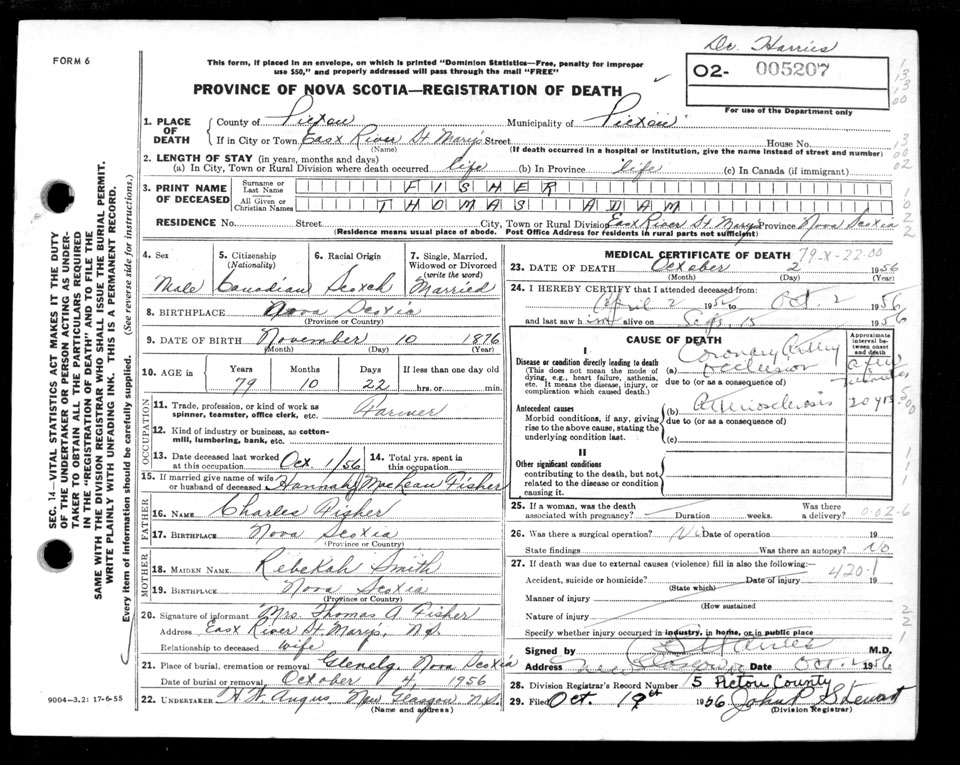 Dr. Harries
FORM 6
This form, if placed in an envelope, on which is printed "Dominion Statistics—Free, penalty for improper
use $50," and properly addressed will pass through the mail "FREE"
02- 005207
PROVINCE OF NOVA SCOTIA—REGISTRATION OF DEATH
For use of the Department only
1. PLACE OF DEATH
County of Pictou Municipality of Pictou
If in City or Town East River St Mary's Street House No.
(Name) (If death occurred in a hospital or institution, give the name instead of street and number)
2. LENGTH OF STAY (in years, months and days)
(a) In City, Town or Rural Division where death occurred life (b) In Province life (c) In Canada (if immigrant)
3. PRINT NAME OF DECEASED
Surname or Last Name FISHER
All Given or Christian Names THOMAS ADAM
RESIDENCE No. Street City, Town or Rural Division East River St Mary's Province Nova Scotia
(Residence means usual place of abode. Post Office Address for residents in rural parts not sufficient)
4. Sex Male
5. Citizenship (Nationality) Canadian
6. Racial Origin Scotch
7. Single, Married, Widowed or Divorced (write the word) Married
8. BIRTHPLACE Nova Scotia
(Province or Country)
9. DATE OF BIRTH November 10 1876
(Month) (Day) (Year)
10. AGE in Years 79 Months 10 Days 22 If less than one day old hrs. or min.
OCCUPATION
11. Trade, profession, or kind of work as spinner, teamster, office clerk, etc. Farmer
12. Kind of industry or business, as cotton-mill, lumbering, bank, etc.
13. Date deceased last worked at this occupation Oct. 1/56
14. Total yrs. spent in this occupation
15. If married give name of wife or husband of deceased Hannah MacLean Fisher
FATHER
16. NAME Charles Fisher
17. BIRTHPLACE Nova Scotia
(Province or Country)
MOTHER
18. MAIDEN NAME Rebekah Smith
19. BIRTHPLACE Nova Scotia
(Province or Country)
20. Signature of informant Mrs. Thomas A Fisher
Address East River St Mary's, N.S.
Relationship to deceased wife
21. Place of burial, cremation or removal Glenelg, Nova Scotia
Date of burial or removal October 4, 1956
22. UNDERTAKER H. W. Angus, New Glasgow N.S.
(Name and address)
9004—3.2: 17-6-55
MEDICAL CERTIFICATE OF DEATH 79-X-22.00
23. DATE OF DEATH October 2 1956
(Month) (Day) (Year)
24. I HEREBY CERTIFY that I attended deceased from:
April 2 to Oct. 2 1956
and last saw him alive on Sept. 15 1956
CAUSE OF DEATH
Approximate interval between onset and death
I
Disease or condition directly leading to death
(This does not mean the mode of dying, e.g., heart failure, asthenia, etc. It means the disease, injury, or complication which caused death.)
(a) Coronary Artery occlusion a few minutes
due to (or as a consequence of)
Antecedent causes
Morbid conditions, if any, giving rise to the above cause, stating the underlying condition last.
(b) Arteriosclerosis 20 yrs
due to (or as a consequence of)
(c)
II
Other significant conditions
contributing to the death, but not related to the disease or condition causing it.
25. If a woman, was the death associated with pregnancy? Duration weeks. Was there a delivery? 0.02.6
26. Was there a surgical operation? No Date of operation 19
State findings Was there an autopsy? No
27. If death was due to external causes (violence) fill in also the following:—
420.1
Accident, suicide or homicide? Date of injury 19
(State which)
Manner of injury
(How sustained)
Nature of injury
Specify whether injury occurred in industry, in home, or in public place
Signed by Harries M.D.
Address New Glasgow Date Oct. 2 1956
28. Division Registrar's Record Number 5 Pictou County
29. Filed Oct. 19th 1956 John P Stewart
(Division Registrar)
SEC. 14—VITAL STATISTICS ACT MAKES IT THE DUTY
OF THE UNDERTAKER OR PERSON ACTING AS UNDER-
TAKER TO OBTAIN ALL THE PARTICULARS REQUIRED
IN THE "REGISTRATION OF DEATH" AND TO FILE THE
SAME WITH THE DIVISION REGISTRAR WHO SHALL ISSUE THE BURIAL PERMIT.
WRITE PLAINLY WITH UNFADING INK. THIS IS A PERMANENT RECORD.
Every item of information should be carefully supplied. (See reverse side for instructions.)